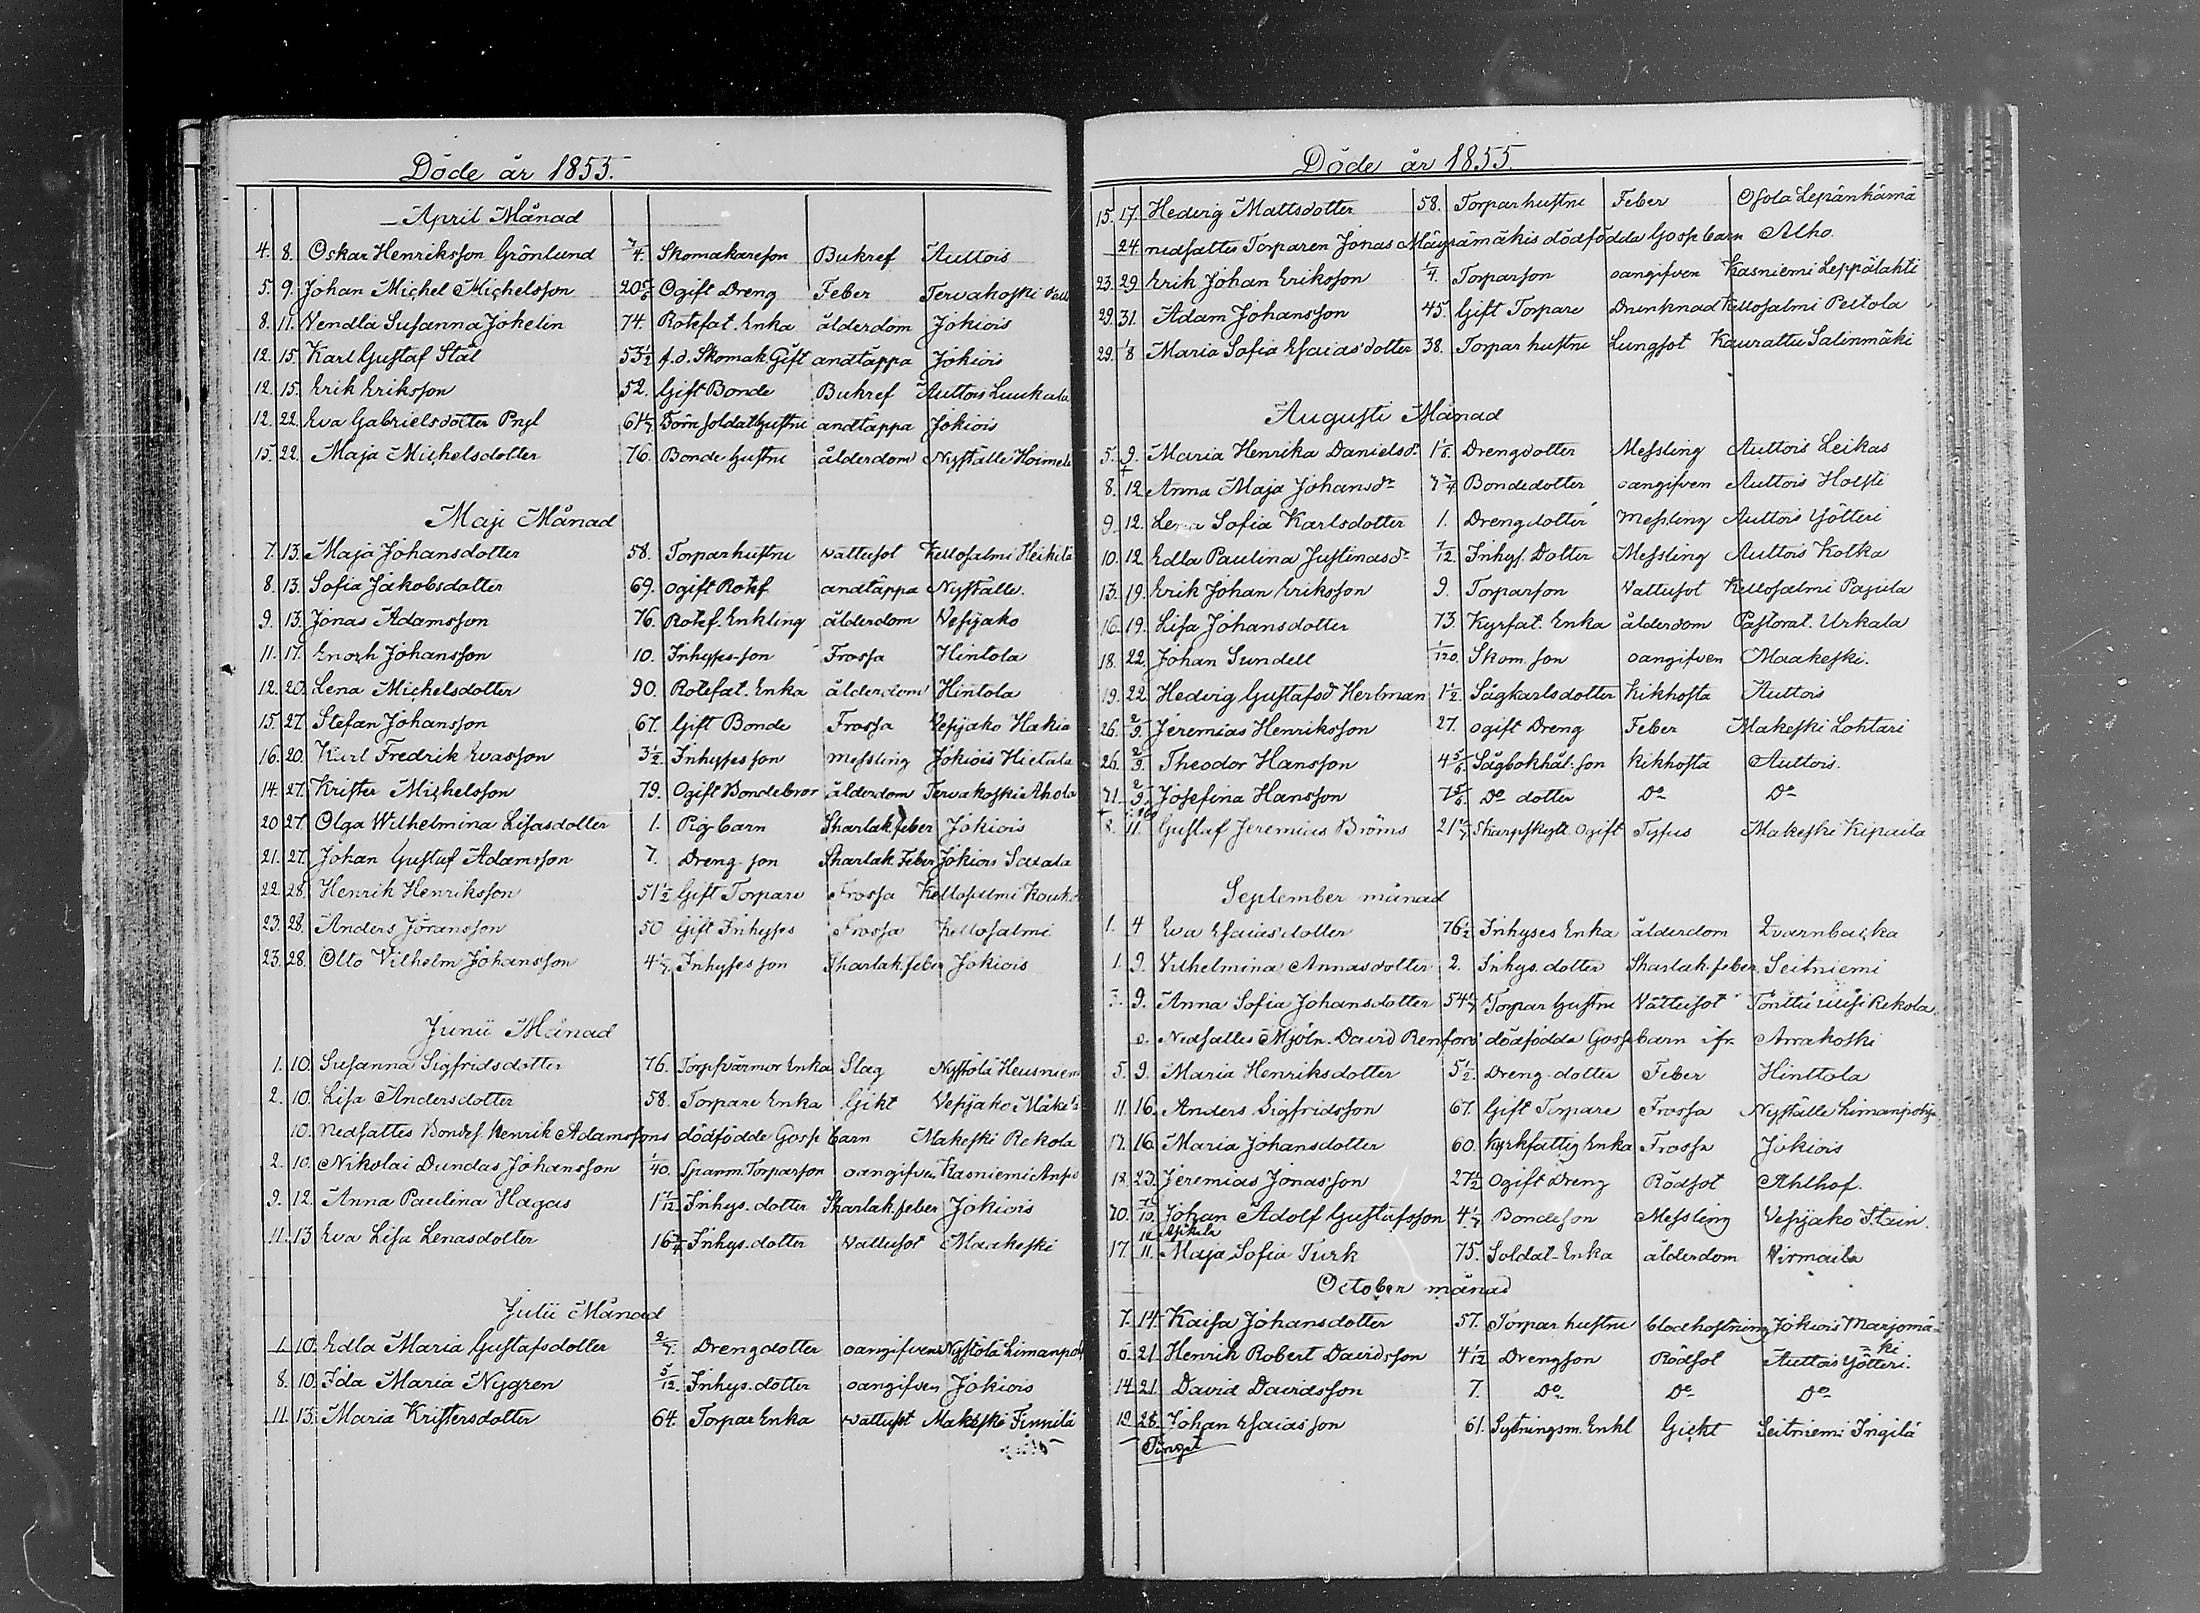 Döde år 1855.
April Månad
4. 8. Oskar Henriksson Grönlund Skomakareson Bukref Auttois
5. 9. Johan Michel Michelsson 20 5/6 Ogift Dreng Feber Tervakoski
8. 11. Vendla Susanna Jokelin 74. Rotefat. Enka ålderdom Jokiois
12. 15. Karl Gustaf Stål 53 1/2 f.d. Skomak. Gift andtäppa Jokiois
12. 15. Erik Eriksson 52. Gift Bonde Bukref Auttois Luukala
12. 22. Eva Gabrielsdotter Pryl andtäppa Jokiois
15. 22. Maja Michelsdotter 76. Bonde hustru ålderdom Nyställe
Maji Månad
7. 13. Maja Johansdotter 58. Torparhustru vattusot Kellosalmi Heikila
8. 13. Sofia Jakobsdotter 69. ogift Rotef andtäppa Nyställe.
9. 13. Jonas Adamsson 76. Rotef. Enkling ålderdom Vesijako
11. 17. Enoch Johansson 10. Inhyses-son Frossa Hintola
12. 20. Lena Michelsdotter 90. Rotefat. Enka ålderdom Hintola
15. 27. Stefan Johansson 67. Gift Bonde Frossa Vesijako Hakia
16. 20. Karl Fredrik Evasson 3 1/2 Inhyses son messling Jokiois Hietala
14. 27. Krister Michelsson 79. Ogift Bondebror ålderdom Tervakoski Ahola
20 27. Olga Wilhelmina Lisasdotter 1. Pig. barn Sharlak. feber Jokiois
21. 27. Johan Gustaf Adamsson 7. Dreng son Sharlak. Feber Jokiois
22. 28. Henrik Henriksson 51 1/2 Gift Torpare Frossa Kellosalmi
23. 28. Anders Joransson 50 Gift Inhyses Frossa Kellosalmi
23. 28. Otto Vilhelm Johansson Inhyses son Sharlak. feber Jokiois
Junii Månad
1. 10. Susanna Sigfridsdotter 76. Torpsvärmor Enka Slag Nystölä
2. 10. Lisa Andersdotter 58. Torpare Enka Gikt Vesijako Mäkelä
10. nedsattes Bondes Henrik Adamssons dödfödde Gosse barn Makeski Rekola
2. 10. Nikolai Dundas Johansson 1/40. Torparson oangifven Kasniemi
9. 12. Anna Paulina Hagas 1 7/12 Inhys. dotter Sharlak. feber Jokiois
11. 13 Eva Lisa Lenasdotter 16 3/4 Inhys. dotter vattusot Maakeski
Julii Månad
1. 10. Edla Maria Gustafsdotter Drengdotter oangifven Nystölä Limanpohj
8. 10. Ida Maria Nygren 5/12. Inhys. dotter oangifven Jokiois
11. 13. Maria Kristersdotter 64. Torpar Enka vattusot Makeski Finnilä
Döde år 1855.
15. 17. Hedvig Mattsdotter 58. Torparhustru Feber Osola Lepänkämä
24. nedsattes Torparen Jonas Mäyrämäkis dödfödda Gosse barn Alho.
23. 29. Erik Johan Eriksson 1/4. Torparson oangifven Kasniemi Leppälahti
29. 31. Adam Johansson 45. Gift Torpare Drunknad Kellosalmi Peltola
29. 1/8 Maria Sofia Esaiasdotter 38. Torpar hustru Lungsot Kaurattu Salinmäki
Augusti Månad
5. 9. Maria Henrika Danielsdr. 1 1/6. Drengdotter Messling Auttois Leikas
8. 12. Anna Maja Johansdr. Bondedotter oangifven Auttois Holsti
9. 12. Sofia Karlsdotter 1. Drengdotter Messling Auttois Yötteri
10. 12. Edla Paulina Justinasdr. 7/12. Inhys. Dotter Messling Auttois Kotka
13. 19. Erik Johan Eriksson 9. Torparson Vattusot Kellosalmi Papila
16. 19. Lisa Johansdotter 73. Kyrfat. Enka ålderdom Pastorat. Urkala
18. 22. Johan Sundell 1/120. Skom. son oangifven Maakeski.
19. 22. Hedvig Gustafsd. Hertman 1 1/2. Sågkarlsdotter Kikhosta Auttois
26. 2/9. Jeremias Henriksson 27. ogift Dreng Feber Makeski Lohtari
26. 2/9. Theodor Hansson 4 5/6. Sågbokhål. son Kikhosta Auttois.
2/9. Josefina Hansson Do dotter Do Do
8. 11. Gustaf Jeremias Bröms Skarpskytt. ogift Tyfus Makeski Kipaila
September månad
1. 4 Eva Esaiasdotter 76 1/2 Inhyses Enka ålderdom Qvarnbacka
1. 9. Vilhelmina Annasdotter 2. Inhys. dotter Sharlak. feber. Seitniemi
3. 9. Anna Sofia Johansdotter Torpar hustru Vattusot Rekola
9. Nedsattes Mjöln. David Renfors dödfödda Gosse barn ifr. Arrakoski
5. 9. Maria Henriksdotter 5 1/2. Dreng-dotter Feber Hinttola
11. 16. Anders Sigfridsson 67. Gift Torpare Frossa Nyställe Limanpohja
12. 16. Maria Johansdotter 60. Kyrkfattig Enka Frossa Jokiois
18. 23. Jeremias Jonasson 27 1/2 Ogift Dreng Rödsot Ahlhof.
20. 7/10. Johan Adolf Gustafsson Bondeson Messling Vesijako Stain.
17. 11. Maja Sofia Turk 75. Soldat-Enka ålderdom Virmaila
October månad
7. 14. Kaisa Johansdotter 57. Torpar hustru blodhostning Jokiois Marjomä-
ki
6. 21. Henrik Robert Davidsson 4 1/12 Drengson Rödsot Auttois Yötteri.
14. 21. David Davidsson 7. Do Do Do
19 28. Johan Esaiasson 61. Sytningsm. Enkl Gicht Seitniemi Ingilä